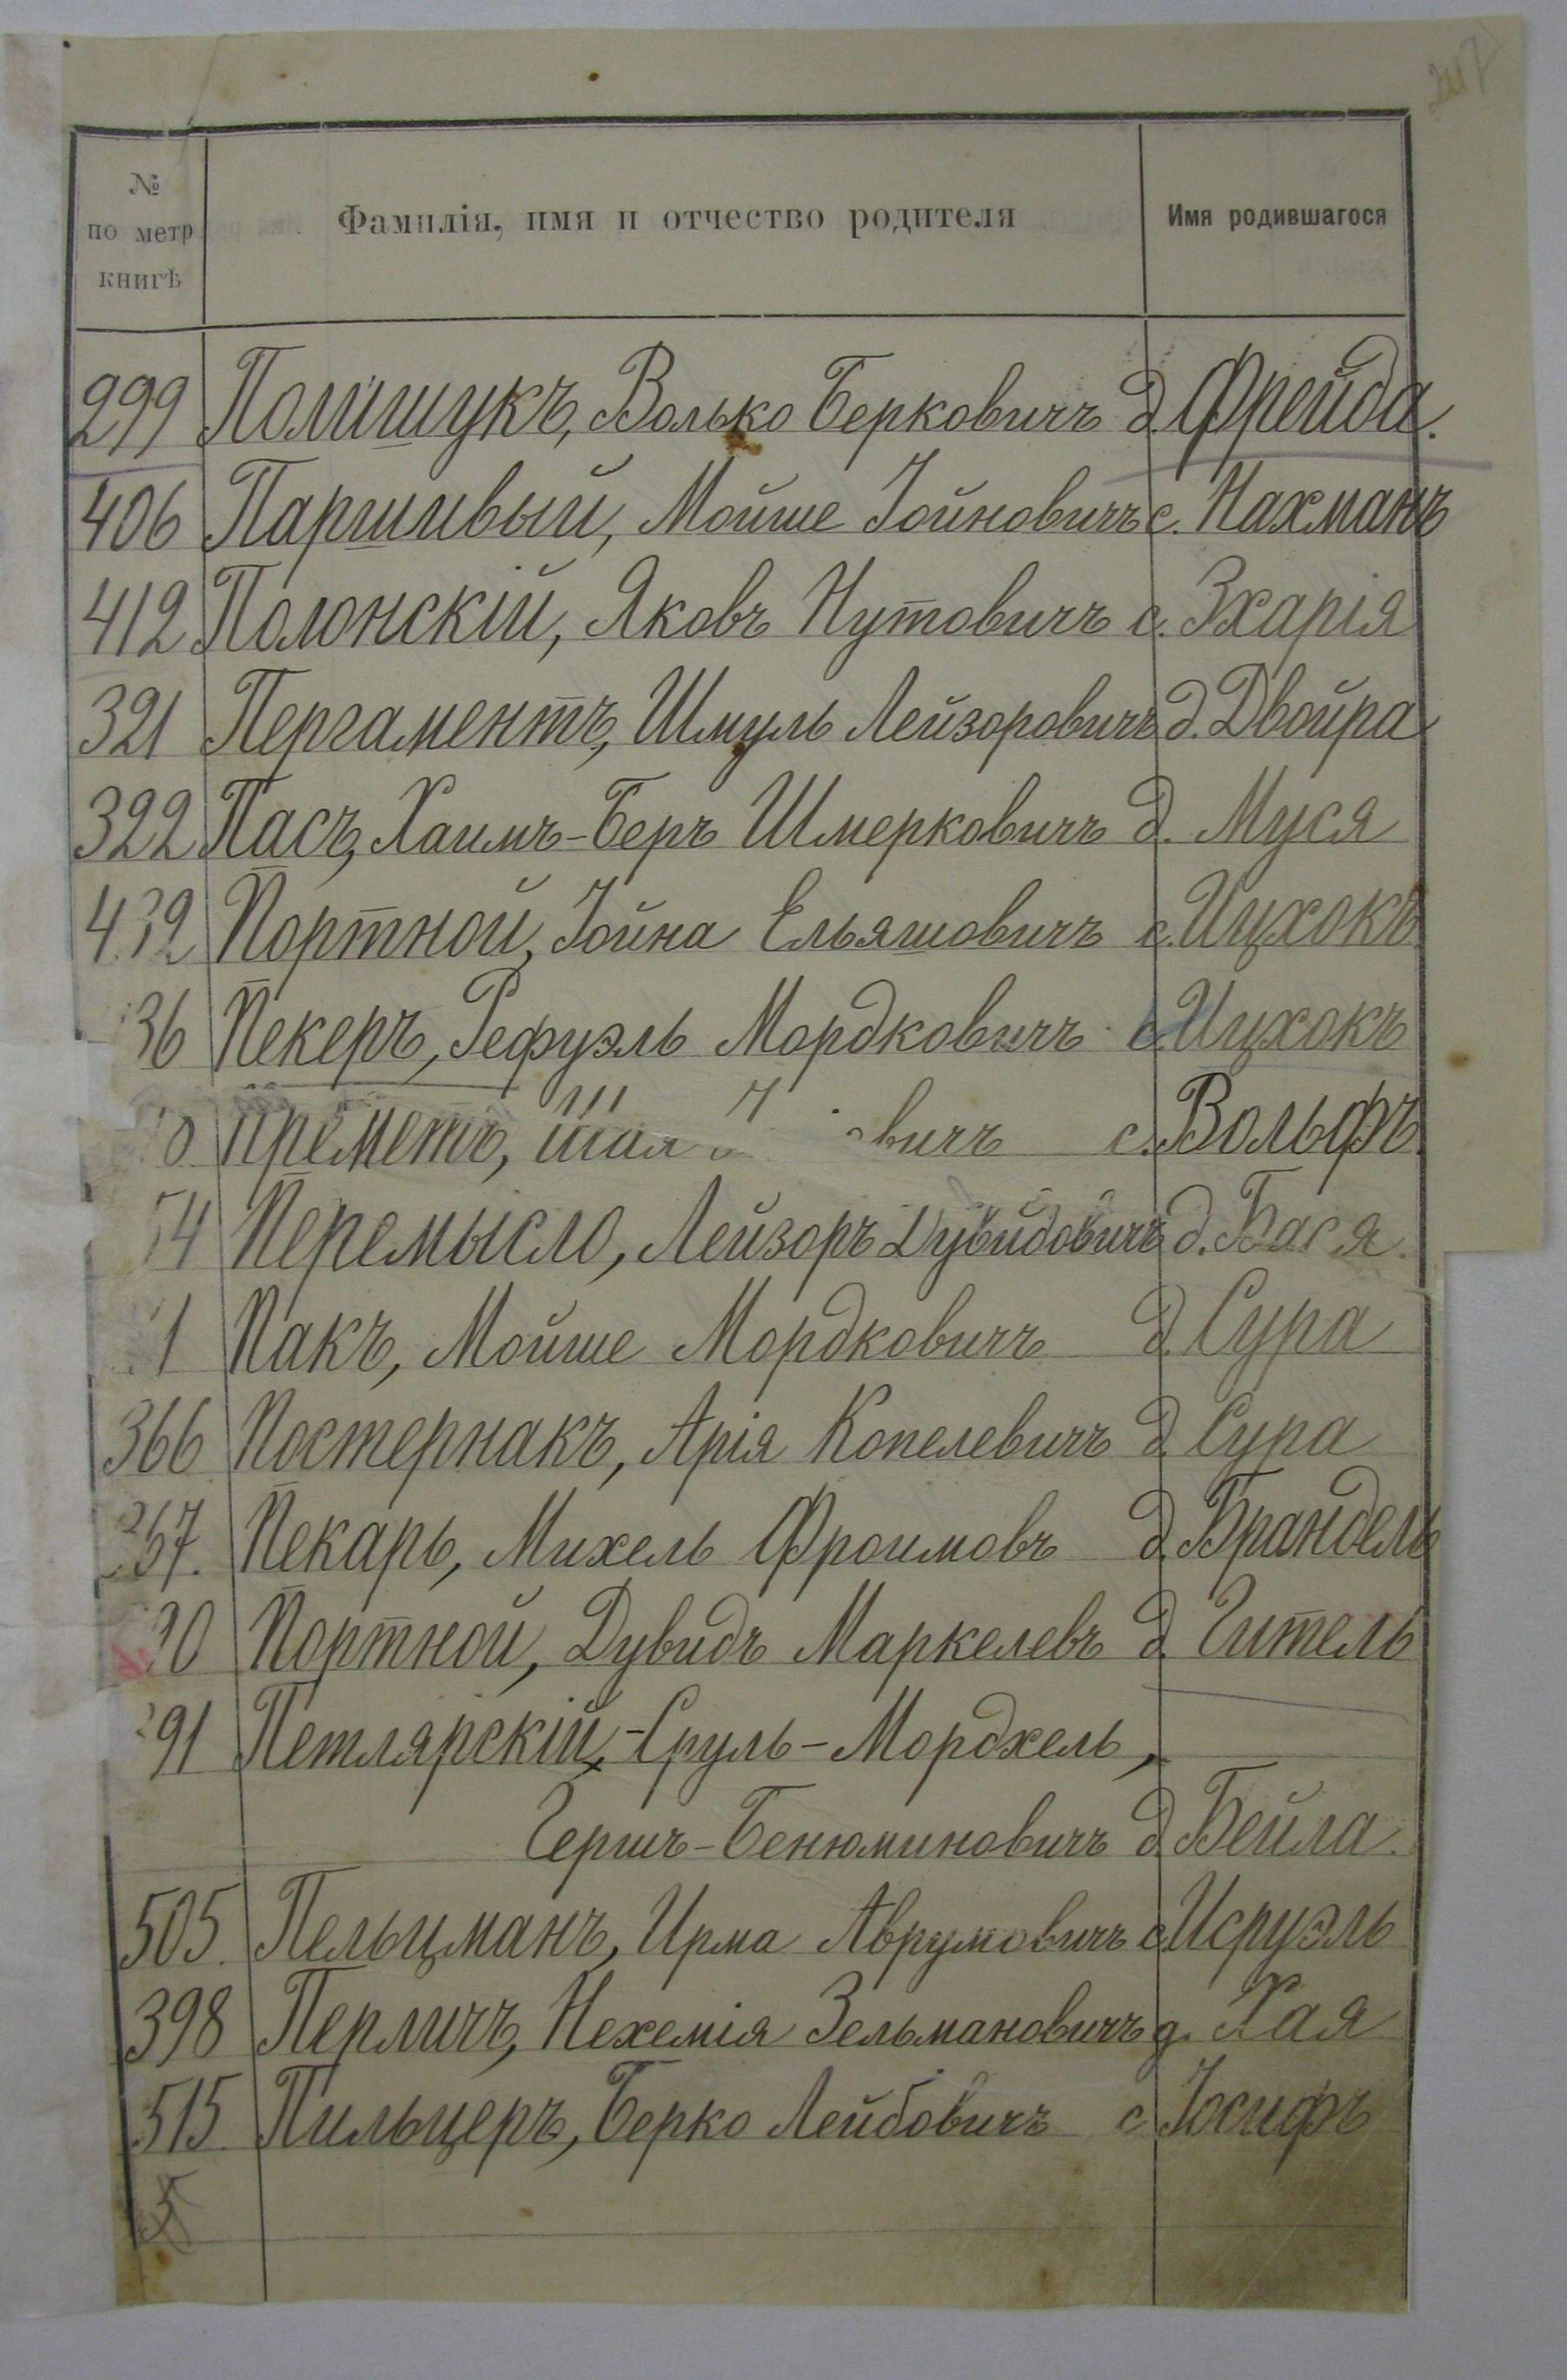 №
по метр
книгѣ
Фамилія, имя и отчество родителя
Имя родившагося
299 Полишукъ, Волько Берковичъ д. Фрейда.
406 Паршивый, Мойше Іойновичъ с. Нахманъ
412 Полонскій, Яковъ Нутовичъ с. Зхарія
321 Пергаментъ, Шмуль Лейзоровичъ д. Двойра
322 Пасъ, Хаимъ-Беръ Шмерковичъ д. Муся
432 Портной, Іойна Ельяшовичъ с. Ицхокъ
36 Пекеръ, Рефуэль Мордковичъ с. Ицхокъ
Преметъ, Шая вичъ с. Вольфъ.
54 Перемысло, Лейзоръ Дувидовичъ д. Бася.
1 Пакъ, Мойше Мордковичъ д. Сура
366 Постернакъ, Арія Копелевичъ д. Сура
367. Пекарь, Михель Фроимовъ д. Брандель
90 Портной, Дувидъ Маркелевъ д. Гитель
391 Петлярскій, -Сруль-Мордхель,
Гершъ-Бенюминовичъ д. Бейла.
505. Пельцманъ, Ирма Аврумовичъ с. Исруэль
398 Перличъ, Нехемія Зельмановичъ д. Хая
515 Пильцеръ, Берко Лейбовичъ с. Іосифъ